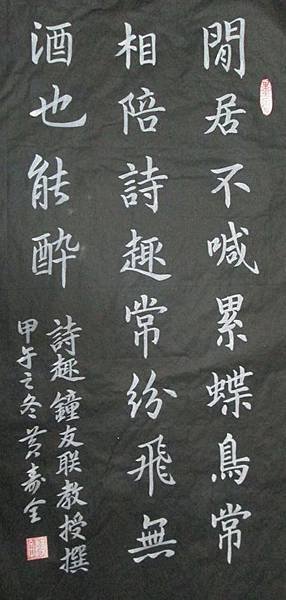 閒居不喊累蝶鳥常
相陪詩趣常紛飛無
酒也能醉
詩趣鐘友联教授撰
甲午之冬黃壽全